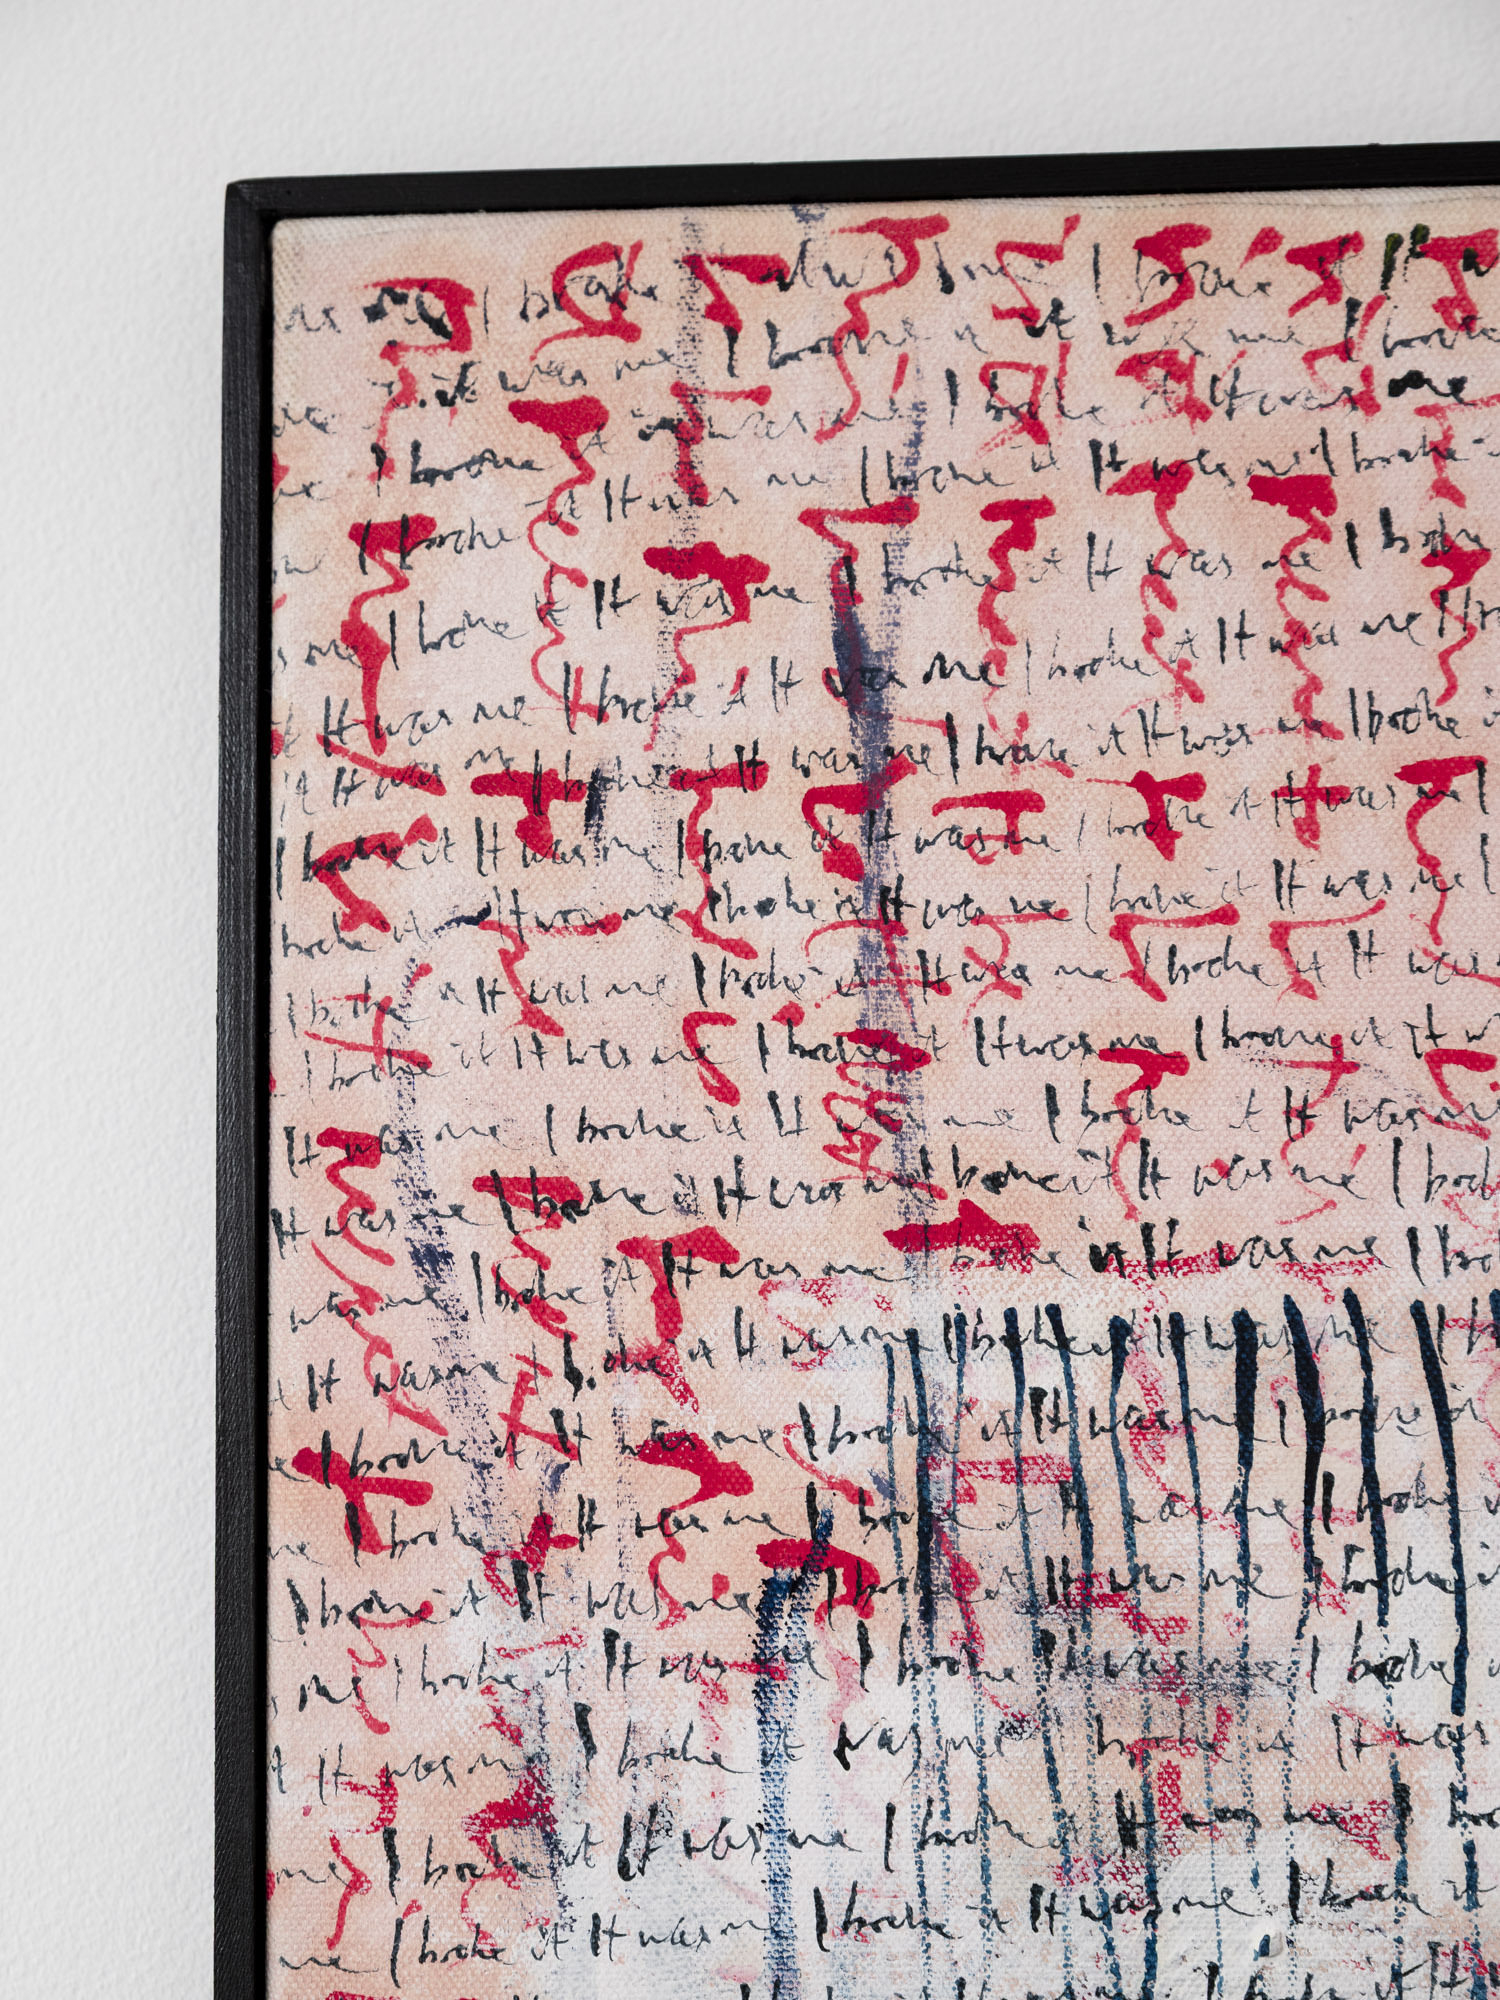 me I broke it was me I broke it
it was me I broke it it was me I broke
me it was me I broke it It was me
me I broke it It was me I broke it It was me I broke it
me I broke it It was me I broke it It was me I broke
me I broke it It was me I broke it It was me I
it It was me I broke it It was me I broke it It was me I broke it
it It was me I broke it It was me I broke it It was me I broke it
I broke it It was me I broke it It was me I broke it It was me I
broke it It was me I broke it It was me I broke it It was me I
I broke it It was me I broke it It was me I broke it It was
I broke it It was me I broke it It was me I broke it It
It was me I broke it It was me I broke it It was me
It was me I broke it It was me I broke it It was me I
was me I broke it It was me I broke it It was me I
it It was me I broke it It was me I broke it It was me I
me I broke it It was me I broke it It was me I broke it
me I broke it It was me I broke it It was me I broke
I broke it It was me I broke it It was me I broke it
me I broke it It was me I broke It was me I broke
it It was me I broke it was me I broke it It was
me I broke it It was me I broke it It was me I
me I broke it It was me I broke it It was me I broke it